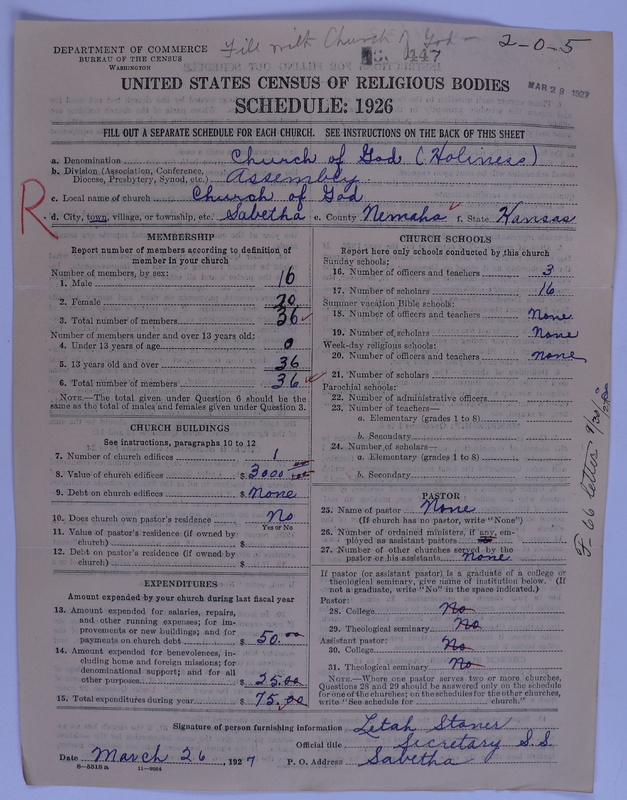 File with Church of God —
2-0-5
447
DEPARTMENT OF COMMERCE
BUREAU OF THE CENSUS
WASHINGTON
MAR 28 1927
UNITED STATES CENSUS OF RELIGIOUS BODIES
SCHEDULE: 1926
FILL OUT A SEPARATE SCHEDULE FOR EACH CHURCH. SEE INSTRUCTIONS ON THE BACK OF THIS SHEET
a. Denomination Church of God (Holiness)
b. Division (Association, Conference, Diocese, Presbytery, Synod, etc.) Assembly
c. Local name of church Church of God
R
d. City, town, village, or township, etc. Sabetha e. County Nemaha f. State Kansas
MEMBERSHIP
Report number of members according to definition of
member in your church
Number of members, by sex:
1. Male 16
2. Female 20
3. Total number of members 36
Number of members under and over 13 years old:
4. Under 13 years of age 0
5. 13 years old and over 36
6. Total number of members 36
NOTE.—The total given under Question 6 should be the
same as the total of males and females given under Question 3.
CHURCH BUILDINGS
See instructions, paragraphs 10 to 12
7. Number of church edifices 1
8. Value of church edifices $ 3000
9. Debt on church edifices $ None
10. Does church own pastor's residence No
Yes or No
11. Value of pastor's residence (if owned by
church) $
12. Debt on pastor's residence (if owned by
church) $
EXPENDITURES
Amount expended by your church during last fiscal year
13. Amount expended for salaries, repairs,
and other running expenses; for im-
provements or new buildings; and for
payments on church debt $ 50.00
14. Amount expended for benevolences, in-
cluding home and foreign missions; for
denominational support; and for all
other purposes $ 25.00
15. Total expenditures during year $ 75.00
CHURCH SCHOOLS
Report here only schools conducted by this church
Sunday schools:
16. Number of officers and teachers 3
17. Number of scholars 16
Summer vacation Bible schools:
18. Number of officers and teachers None
19. Number of scholars None
Week-day religious schools:
20. Number of officers and teachers None
21. Number of scholars
Parochial schools:
22. Number of administrative officers
23. Number of teachers—
a. Elementary (grades 1 to 8)
b. Secondary
24. Number of scholars—
a. Elementary (grades 1 to 8)
b. Secondary
PASTOR
25. Name of pastor None
(If church has no pastor, write "None")
26. Number of ordained ministers, if any, em-
ployed as assistant pastors
27. Number of other churches served by the
pastor or his assistants None
If pastor (or assistant pastor) is a graduate of a college or
theological seminary, give name of institution below. (If
not a graduate, write "No" in the space indicated.)
Pastor:
28. College No
29. Theological seminary No
Assistant pastor:
30. College No
31. Theological seminary No
NOTE.—Where one pastor serves two or more churches,
Questions 28 and 29 should be answered only on the schedule
for one of the churches; on the schedules for the other churches,
write "See schedule for church."
F-66 letter
Signature of person furnishing information Letah Stoner
Official title Secretary S.S.
Date March 26, 1927 P. O. Address Sabetha
8-5518 a 11-9064